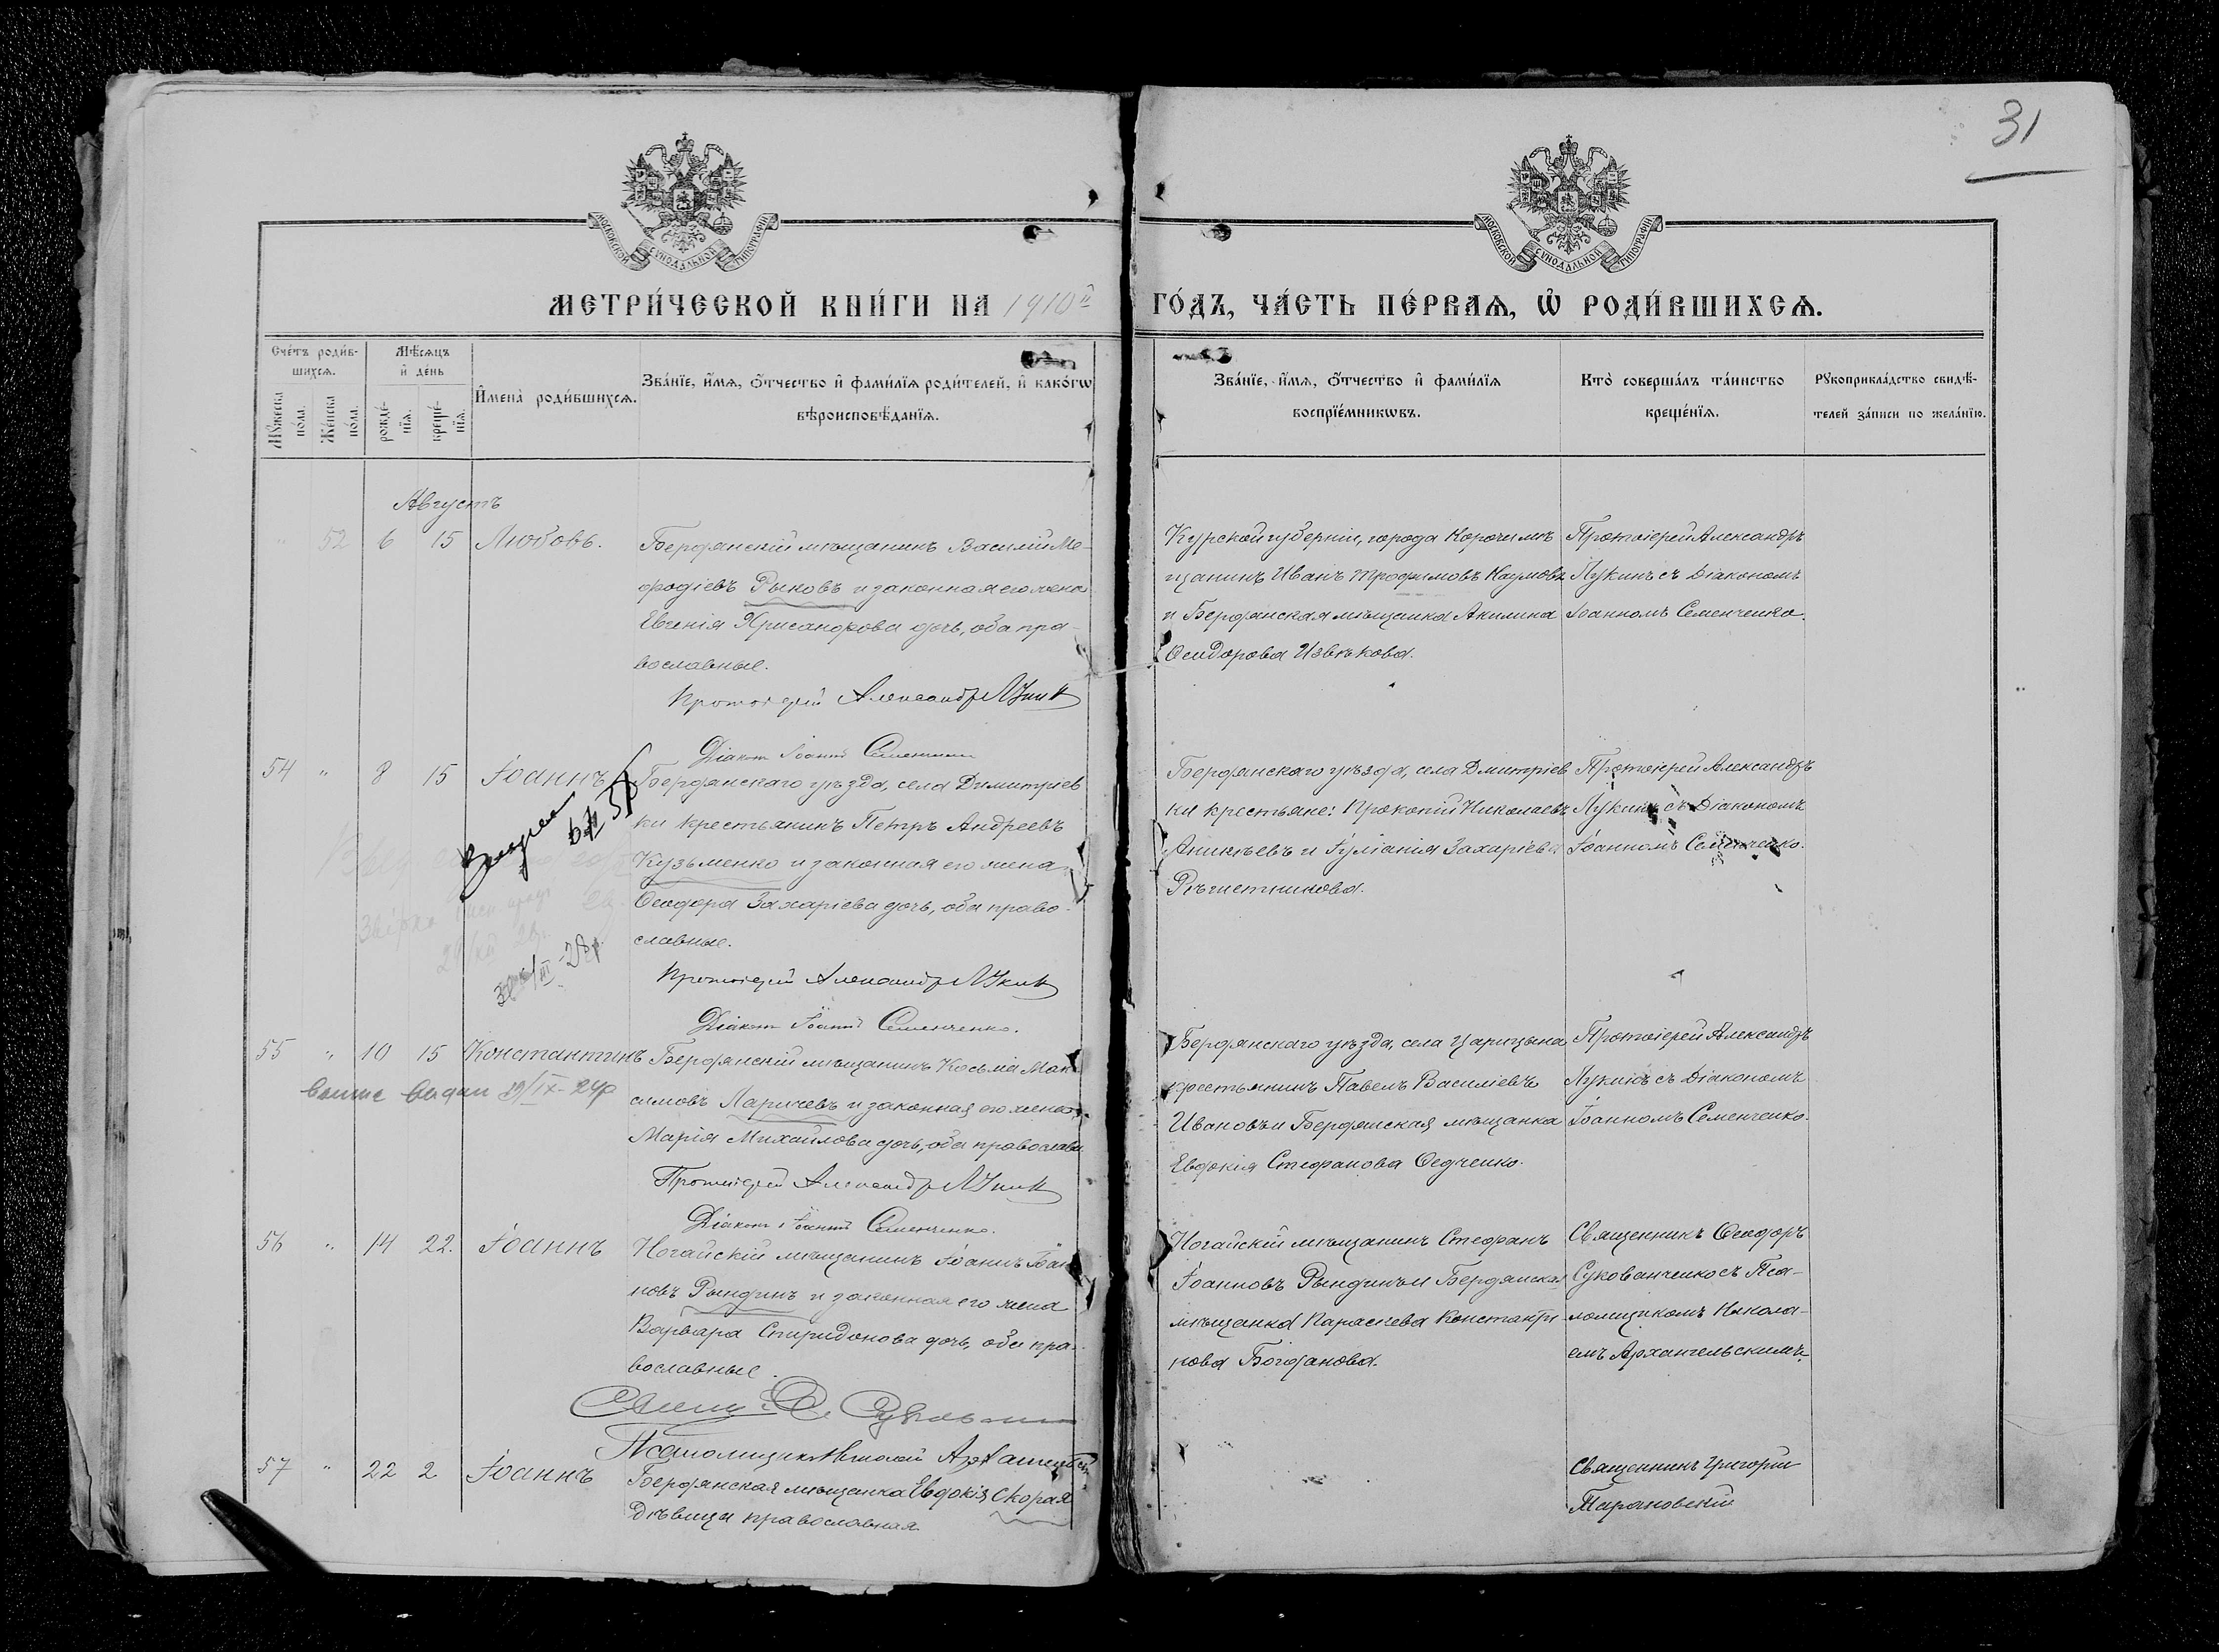 31
МОСКОВСКОЙ СѴНОДАЛЬНОЙ ТИПОГРАФІИ
МОСКОВСКОЙ СѴНОДАЛЬНОЙ ТИПОГРАФІИ
МЕТРИ́ЧЕСКОЙ КНИ́ГИ НА 1910й ГО́ДЪ, ЧА́СТЬ ПЕ́РВАѦ, Ѡ҆ РОДИ́ВШИХСѦ.
Сче́тъ роди́в-
шихсѧ.
Мꙋ́жеска по́ла.
Же́нска по́ла.
Мѣ́сѧцъ
и҆ де́нь
рожде́-
нїѧ.
креще́-
нїѧ.
И҆мена̀ роди́вшихсѧ.
Зва́нїе, и҆́мѧ, ѻ҆́тчество и҆ фами́лїѧ роди́телей, и҆ како́гѡ
вѣроисповѣ́данїѧ.
Зва́нїе, и҆́мѧ, ѻ҆́тчество и҆ фами́лїѧ
воспрїе́мникѡвъ.
Кто̀ соверша́лъ та́инство
креще́нїѧ.
Рꙋкоприкла́дство свидѣ́-
телей за́писи по жела́нїю.
Августъ
" 52 6 15 Любовь.
Бердянскій мѣщанинъ Василій Ме-
фодіевъ Рыковъ и законная его жена
Евгенія Хрисанфова дочь, оба пра-
вославные.
Протоіерей Александр Лукин
Діакон Іоаннъ Семенченко
Курской губерніи, города Корочи мѣ
щанинъ Иванъ Трофимовъ Наумовъ
и Бердянская мѣщанка Акилина
Ѳеодорова Извѣкова.
Протоіерей Александръ
Лукинъ съ Діакономъ
Іоанномъ Семенченко.
54 " 8 15 Іоаннъ
Бердянскаго уѣзда, села Димитріев
ки крестьянинъ Петръ Андреевъ
Кузьменко и законная его жена
Ѳеодора Захаріева дочь, оба право-
славные.
Протоіерей Александр Лукин
Діакон Іоаннъ Семенченко.
Бердянскаго уѣзда, села Дмитріев
ки крестьяне: Прокопій Николаевъ
Аникѣевъ и Іуліанія Захаріева
Рѣшетникова.
Протоіерей Александръ
Лукинъ съ Діакономъ
Іоанномъ Семенченко.
55 " 10 15 Константинъ
выпис видан 19/IX-24р
Бердянскій мѣщанинъ Косьма Мак
симовъ Ларичевъ и законная его жена
Марія Михайлова дочь, оба православн.
Протоіерей Александр Лукин
Діакон Іоаннъ Семенченко.
Бердянскаго уѣзда, села Царицына
крестьянинъ Павелъ Василіевъ
Ивановъ и Бердянская мѣщанка
Евдокія Стефанова Федченко.
Протоіерей Александръ
Лукинъ съ Діакономъ
Іоанномъ Семенченко.
56 " 14 22. Іоаннъ
Ногайскій мѣщанинъ Іоаннъ Іоан
новъ Рындинъ и законная его жена
Варвара Спиридонова дочь, оба пра-
вославные.
Псаломщикъ Николай Архангельск
Ногайскій мѣщанинъ Стефанъ
Іоанновъ Рындинъ и Бердянская
мѣщанка Параскева Константи
нова Богданова.
Священникъ Ѳеодоръ
Сукованченко съ Пса-
ломщикомъ Никола-
емъ Архангельскимъ.
57 " 22 2 Іоаннъ
Бердянская мѣщанка Евдокія Скорая
Дѣвица православная.
Священникъ Григорій
Тарановскій